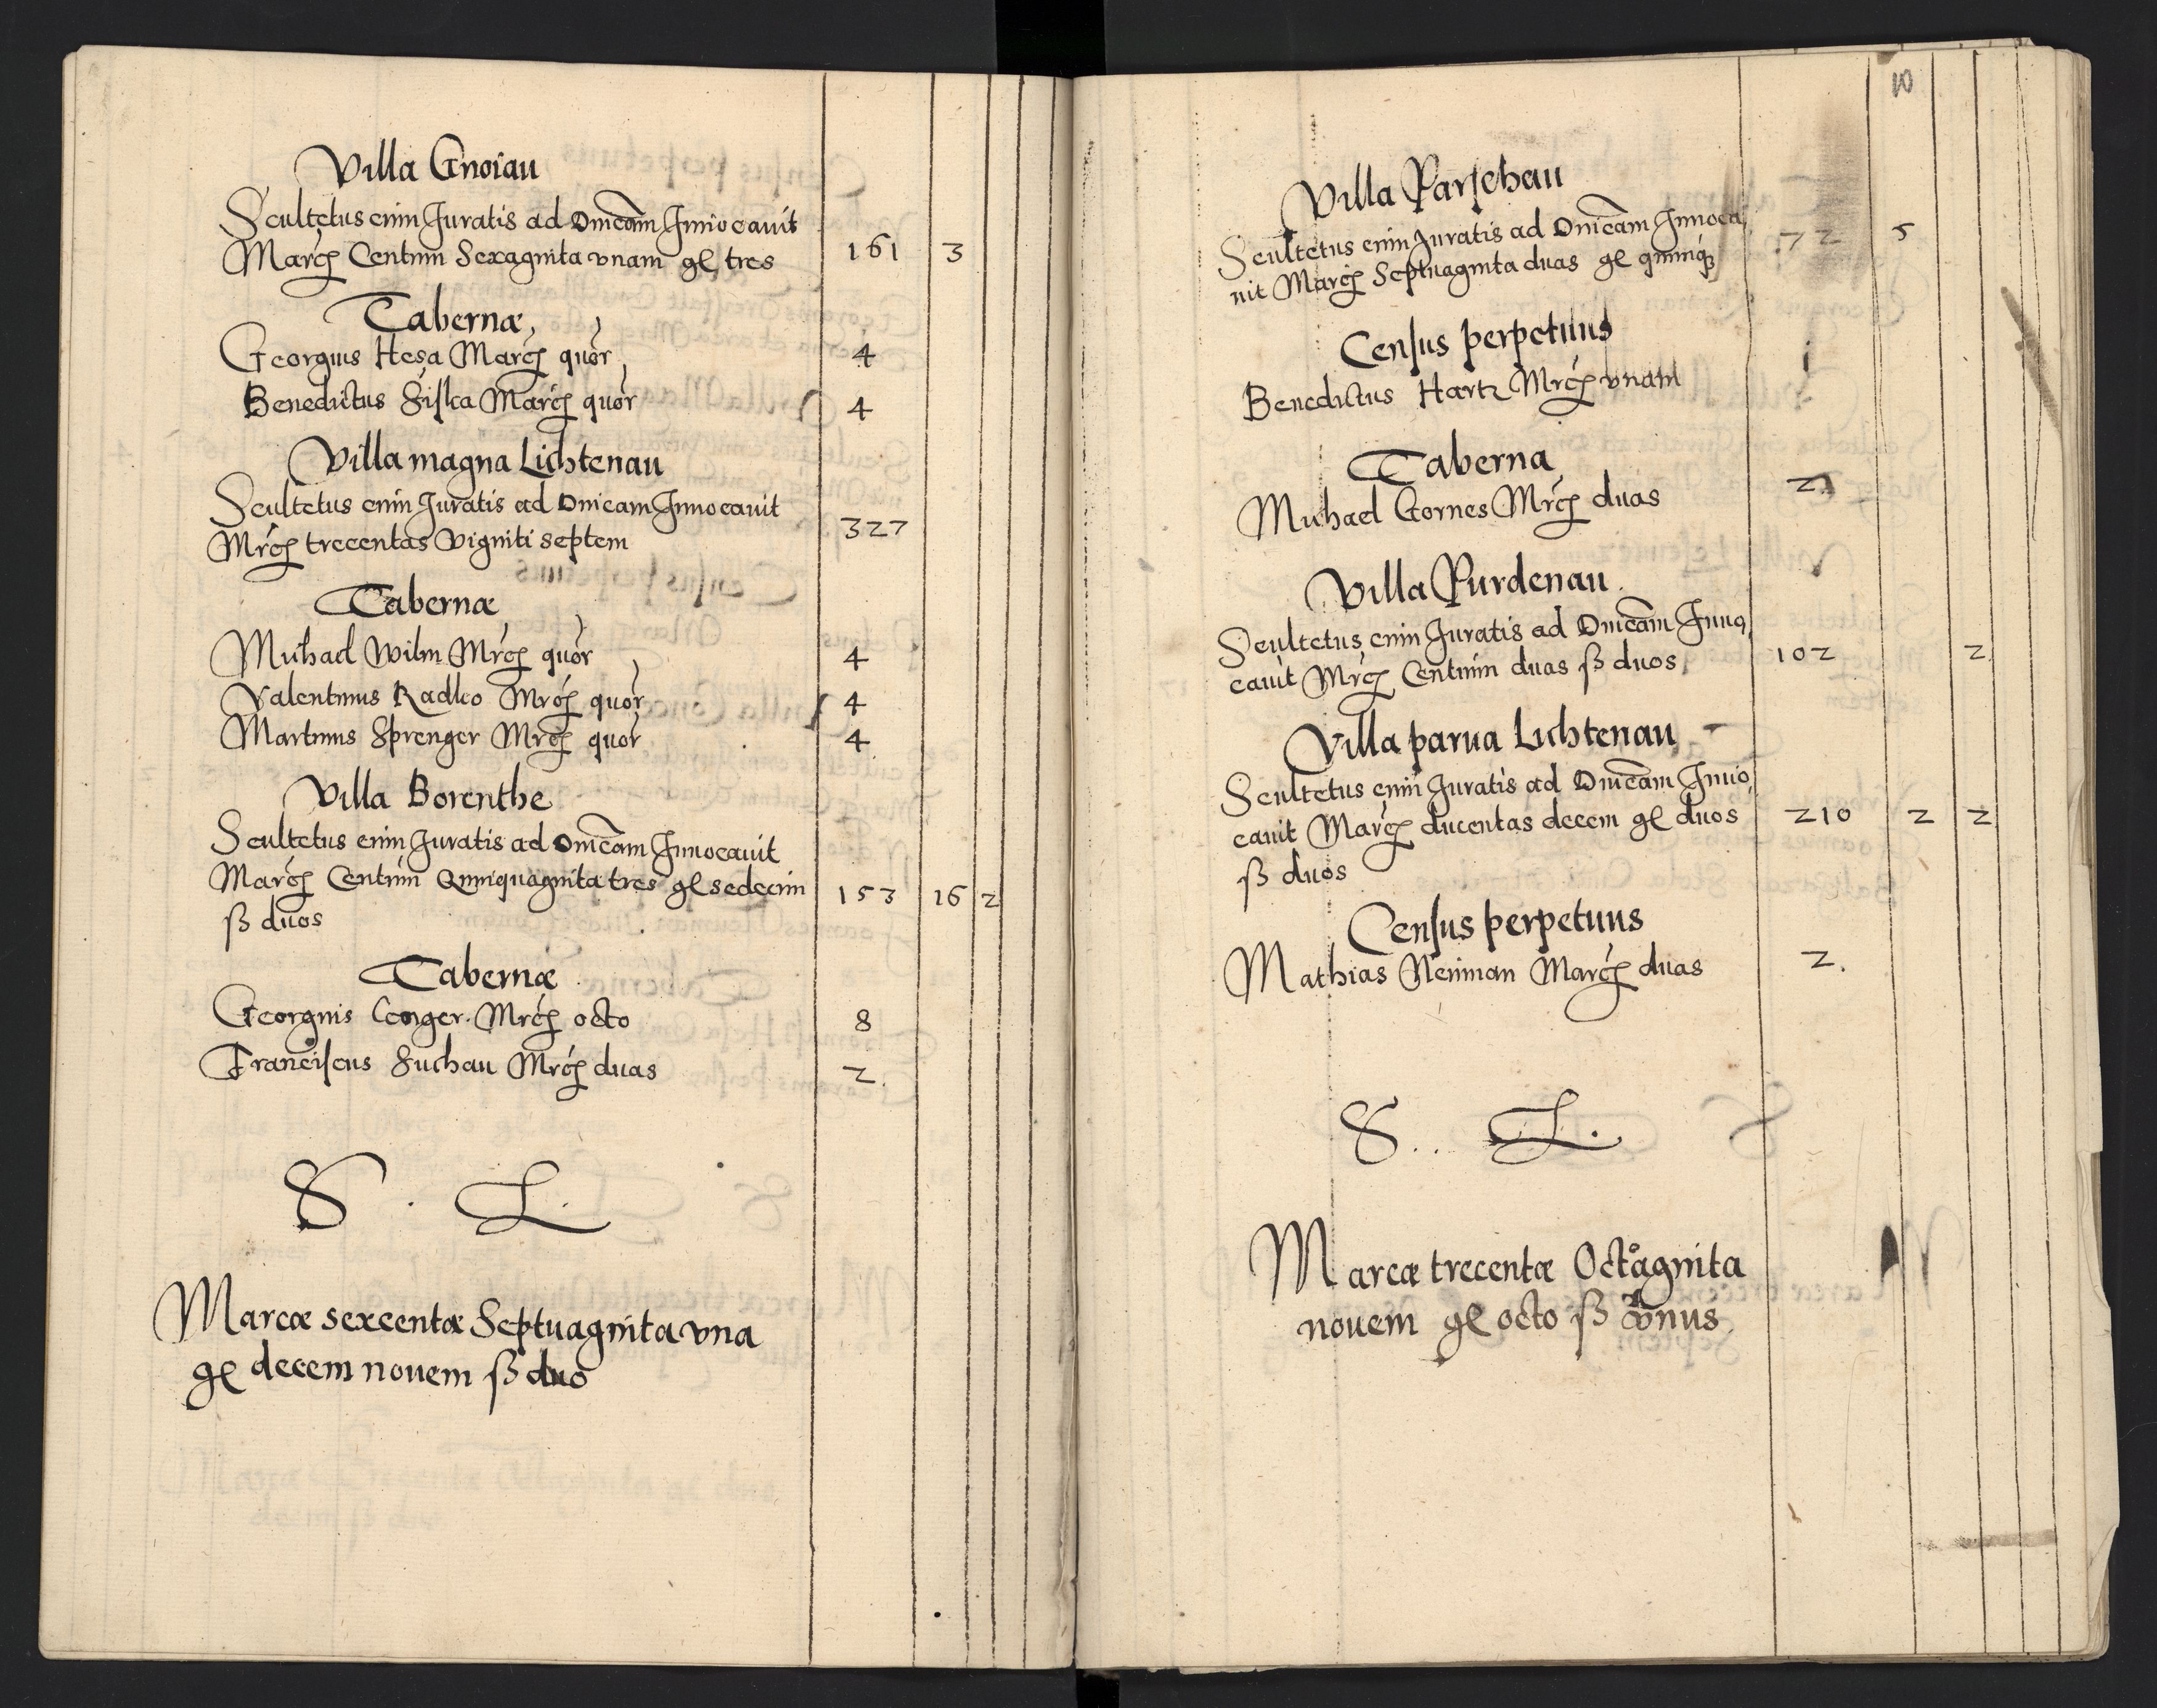 Villa Gnoiau
Scultetus cum Juratis ad Dnicam Inuocauit
Marcs Centum Sexaginta vnam gl tres 161 3
Tabernæ
Georgius Hesa Marcs quor 4
Benedictus Fiska Marcs quor 4
Villa magna Lichtenau
Scultetus cum Juratis ad Dnicam Inuocauit
Mrcs trecentas viginti septem 327
Tabernæ
Michael Wilm Mrcs quor 4
Valentinus Radko Mrcs quor 4
Martinus Sprenger Mrcs quor 4
Villa Borenthe
Scultetus cum Juratis ad Dnicam Inuocauit
Marcs Centum Quinquaginta tres gl sedecim 153 16 2
ß duos
Tabernæ
Georgius Conger Mrcs octo 8
Franciscus Suchau Mrcs duas 2.
S. L.
Marcæ sexcentæ Septuaginta vna
gl decem nouem ß duo
10
Villa Parschau
Scultetus cum Juratis ad Dnicam Inuoca
uit Marcs Septuaginta duas gl quinq3 72 5
Census perpetuus
Benedictus Hartz Mrcs vnam 1
Taberna
Michael Gornes Mrcs duas 2
Villa Purdenau.
Scultetus cum Juratis ad Dnicam Inuo
cauit Mrcs Centum duas ß duos 102 2
Villa parua Lichtenau
Scultetus cum Juratis ad Dnicam Inuo
cauit Marcs ducentas decem gl duos 210 2 2
ß duos
Census perpetuus
Mathias Neuman Marcs duas 2.
S. L.
Marcæ trecentæ Octuaginta
nouem gl octo ß vnus